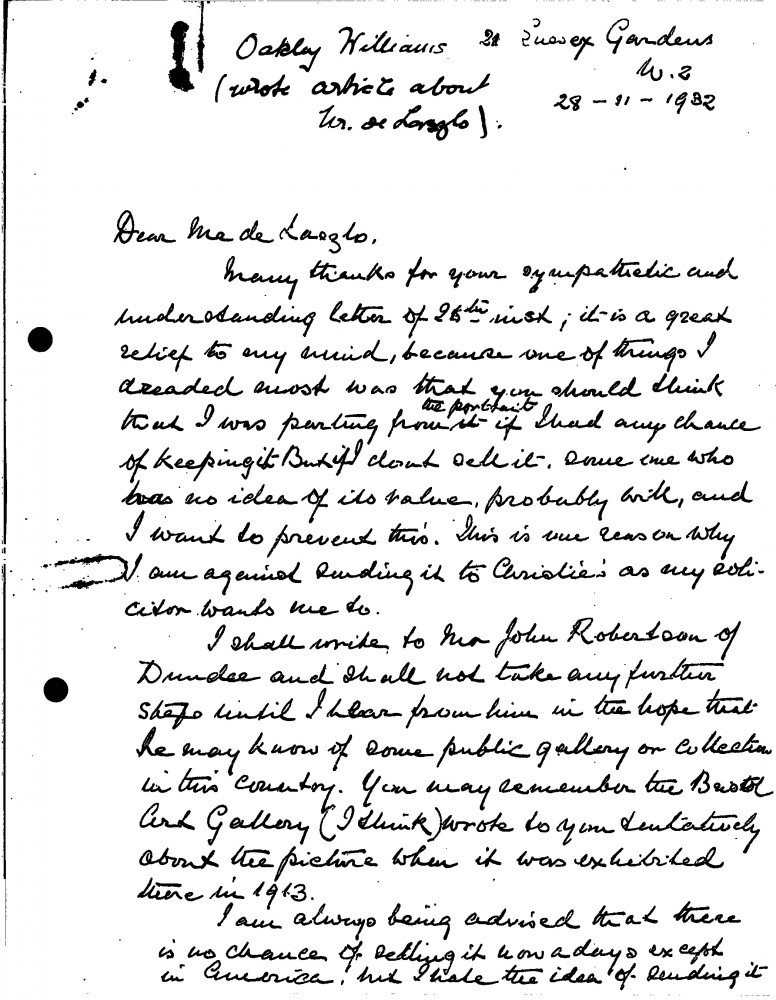 Oakley Williams 21 Sussex Gardens
(wrote article about W.2
Mr. de Laszlo). 28-11-1932
Dear Mr de Laszlo,
Many thanks for your sympathetic and
understanding letter of inst; it is a great
relief to my mind, because one of things I
dreaded most was that you should think
that I was parting from the portrait it if I had any chance
of keeping it But if I dont sell it, some one who
has no idea of its value, probably will, and
I want to prevent this. This is one reason why
I am against sending it to Christie's as my soli-
citor wants me to.
I shall write to Mr John Robertson of
Dundee and shall not take any further
steps until I hear from him in the hope that
he may know of some public gallery or collection
in this country. You may remember the Bristol
Art Gallery (I think) wrote to you tentatively
about the picture when it was exhibited
there in 1913.
I am always being advised that there
is no chance of selling it nowadays except
in America, but I hate the idea of sending it